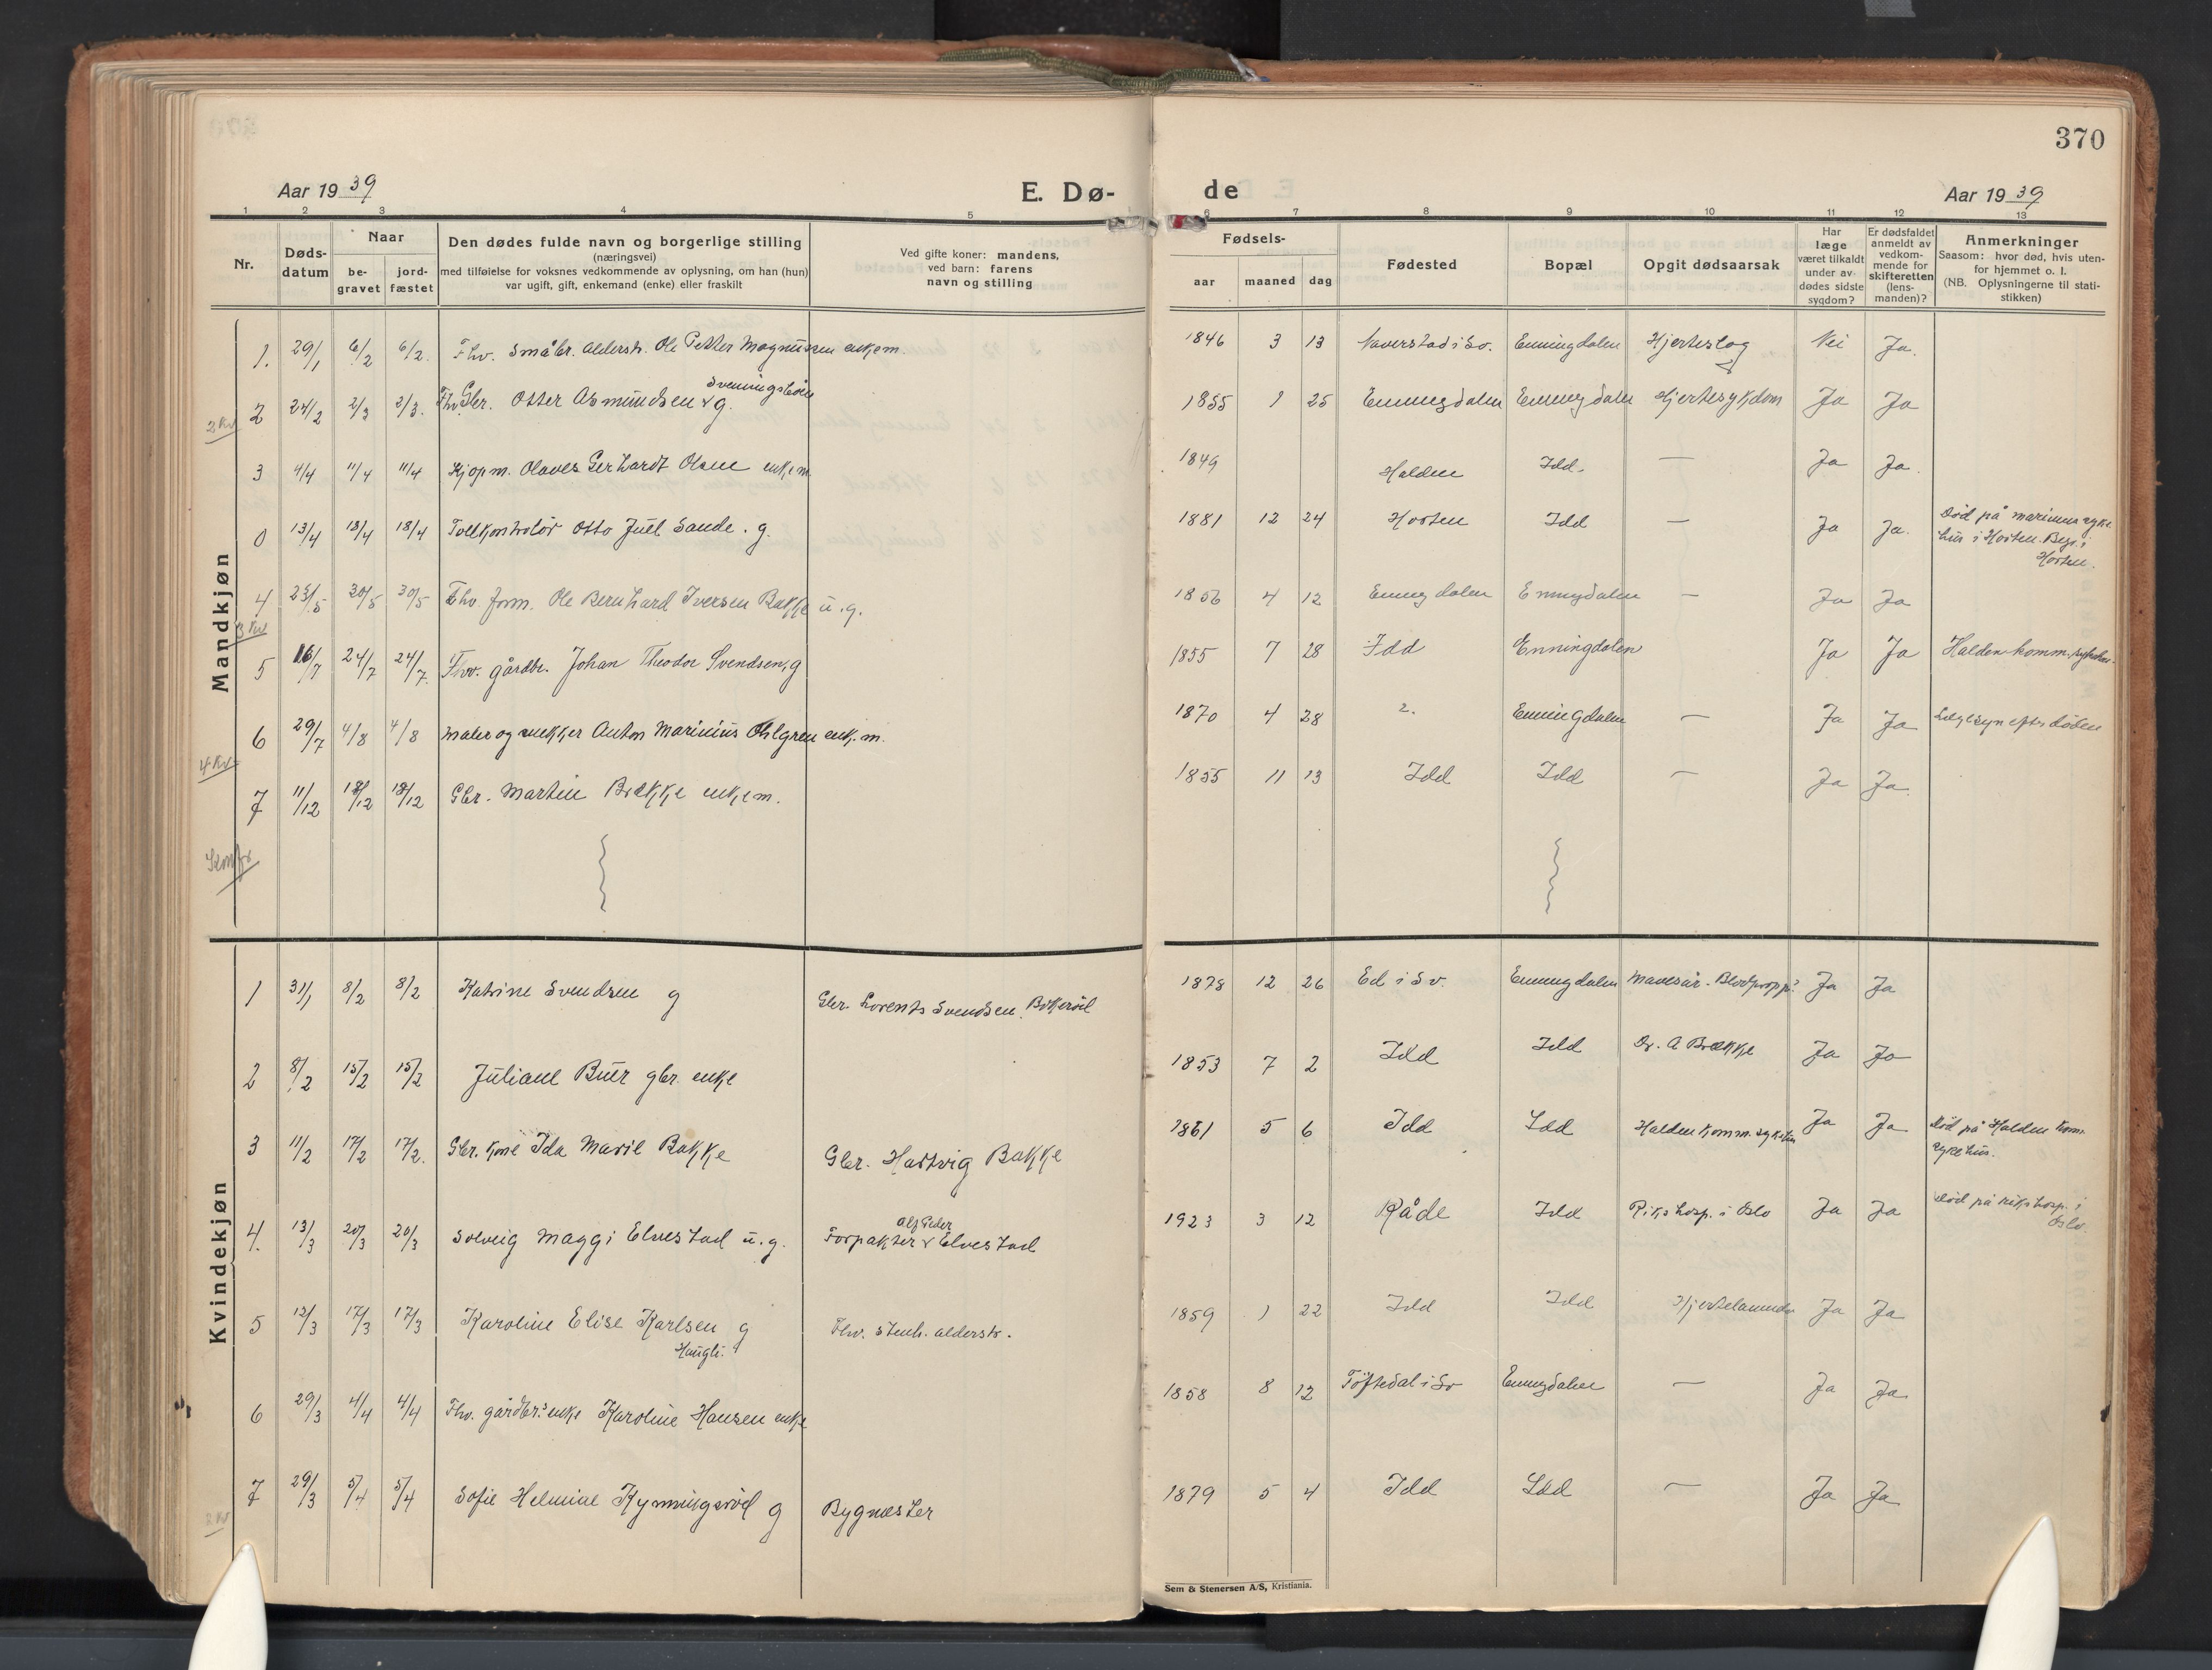 370
Aar 19 39
E. Dø-
de
Aar 19 39
1 2 3 4 5 6 7 8 9 10 11 12 13
Nr.
Døds-
datum
Naar
be-
gravet
jord-
fæstet
Den dødes fulde navn og borgerlige stilling
(næringsvei)
med tilføielse for voksnes vedkommende av oplysning, om han (hun)
var ugift, gift, enkemand (enke) eller fraskilt
Ved gifte koner: mandens,
ved barn: farens
navn og stilling
Fødsels-
aar maaned dag
Fødested
Bopæl
Opgit dødsaarsak
Har
læge
været tilkaldt
under av-
dødes sidste
sygdom?
Er dødsfaldet
anmeldt av
vedkom-
mende for
skifteretten
(lens-
manden)?
Anmerkninger
Saasom: hvor død, hvis uten-
for hjemmet o. l.
(NB. Oplysningerne til stati-
stikken)
Mandkjøn
1. 29/1 6/2 6/2. Fhv. småbr. alderstr. Ole Petter Magnussen enkem. 1846 3 13 Naverstad i Sv. Enningdalen Hjerteslag Nei Ja.
Svenningsbøen
2 24/2 2/3 2/3. Fhv. Gbr. Otter Asmundsen g. 1855 1 25 Enningdalen Enningdalen Hjertesykdom Ja Ja
2 Kv
3 4/4 11/4 11/4 Kjøpm. Olaves Gerhardt Olsen enkem. 1849 Halden Idd. — Ja Ja.
0 13/4 18/4 18/4 Tollkontrolør Otto Juel Sande. g. 1881 12 24 Horten Idd — Ja Ja. Død på marinens syke
hus i Horten. Begr. i
Horten.
4 23/5 30/5 30/5 Fhv. form. Ole Bernhard Iversen Bakke u.g. 1856 4 12 Enningdalen Enningdalen — Ja Ja
3 Kv
5 16/7 24/7 24/7. Fhv. gårdbr. Johan Theodor Svendsen, g 1855 7 28 Idd Enningdalen Ja Ja Halden komm. sykehus.
6 29/7 4/8 4/8 maler og snekker Anton Marinius Ohlgren enk.m. 1870 4 28 Enningdalen — Ja Ja Legesyn efter døden
4 Kv
7 11/12 18/12 18/12 Gbr. Martin Brekke enkem. 1855 11 13 Idd Idd — Ja Ja.
Kvindekjøn
1 31/1 8/2 8/2 Katrine Svendsen g Gbr. Lorents Svendsen. Bokerød 1878 12 26 Ed i Sv. Enningdalen Mavesår. Blodpropp? Ja Ja
2 8/2 15/2 15/2 Juliane Buer gbr. enke 1853 7 2 Idd Idd Dr. A Brække Ja Ja
3 11/2 17/2 17/2. Gbr. kone Ida Marie Bakke Gbr. Hartvig Bakke 1861 5 6 Idd Idd Halden komm. sykehus Ja Ja Død på Halden kom.
sykehus.
Alf Peder
4. 13/3 20/3 20/3 Solveig Maggi Elvestad u.g. Forpakter Elvestad 1923 3 12 Råde Idd Rikshosp. i Oslo Ja Ja Død på rikshosp. i
Oslo.
5 12/3 17/3 17/3 Karoline Elise Karlsen g Fhv. stenh. alderstr. 1859 1 22 Idd Idd Hjertelammelse Ja Ja
Haugli.
6 29/3 4/4 4/4 Fhv. gårdbr.s enke Karoline Hansen enke 1858 8 12 Töftedal i Sv Enningdalen — Ja Ja
7 29/3 5/4 5/4 Sofie Helmine Kynningsrød g Bygmester 1879 5 4 Idd Idd — Ja Ja
Sem & Stenersen A/S, Kristiania.